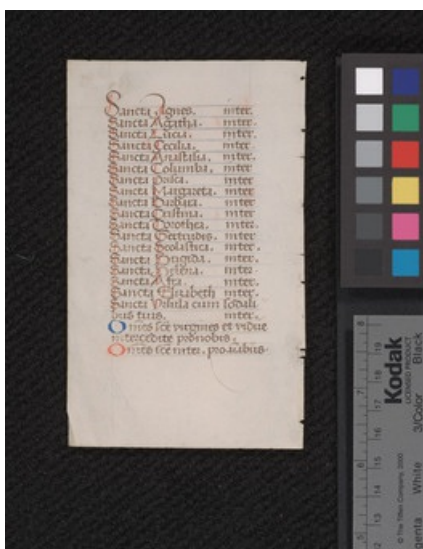 Sancta Agnes. inter.
Sancta Agatha. inter.
Sancta Lucia. inter.
Sancta Cecilia. inter.
Sancta Anastasia. inter.
Sancta Columba. inter.
Sancta Prisca. inter
Sancta Margareta. inter
Sancta Barbara. inter
Sancta Cristina. inter.
Sancta Dorothea. inter.
Sancta Gertrudis. inter.
Sancta Scolastica. inter.
Sancta Brigida. inter.
Sancta Helena. inter.
Sancta Afra. inter.
Sancta Elizabeth inter
Sancta Vrsula cum sodali
bus suis. inter.
Omes sce virgines et vidue
intercedite pronobis.
Omes sce inter. pronobis.
8
19
18
17
16
7
15
14
6
13
5
12
Kodak
LICENSED PRODUCT
© The Tiffen Company, 2000
Black
3/Color
White
genta